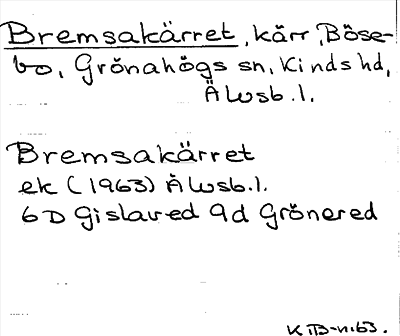 Bremsakärret, kärr, Böse-
bo, Grönahögs sn, Kinds hd,
Älvsb. l.
Bremsakärret
ek (1963) Älvsb. l.
6D Gislaved 9d Grönered